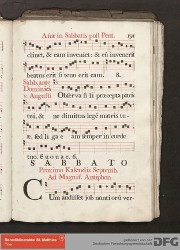 A͂ne in Sabbatis post Pent. 191
clinet, & eam inveniet: & cū invenerit
beatus erit si tenu erit eam. 8.
Sabb. ante
Dominicā
v. Augusti
Observa fi li præcepta patris
tui, & ne dimittas legē matris tu
æ, sed li ga ea in corde
tuo. Euouae. 6.
SABBATO
Proximo Kalendis Septemb.
Ad Magnif. Antiphon.
Cum audisset Job nuntiorū ver
DFG